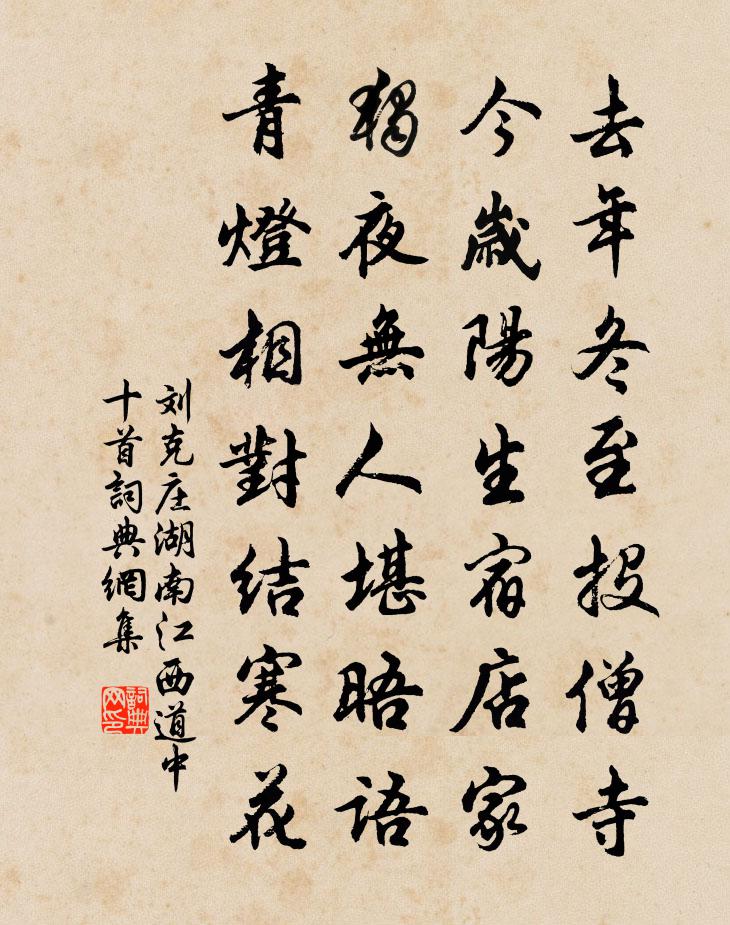 去年冬至投僧寺
今歲陽生宿店家
獨夜無人堪晤語
青燈相對結寒花
刘克庄湖南江西道中
十首詞典網集
詞典網印